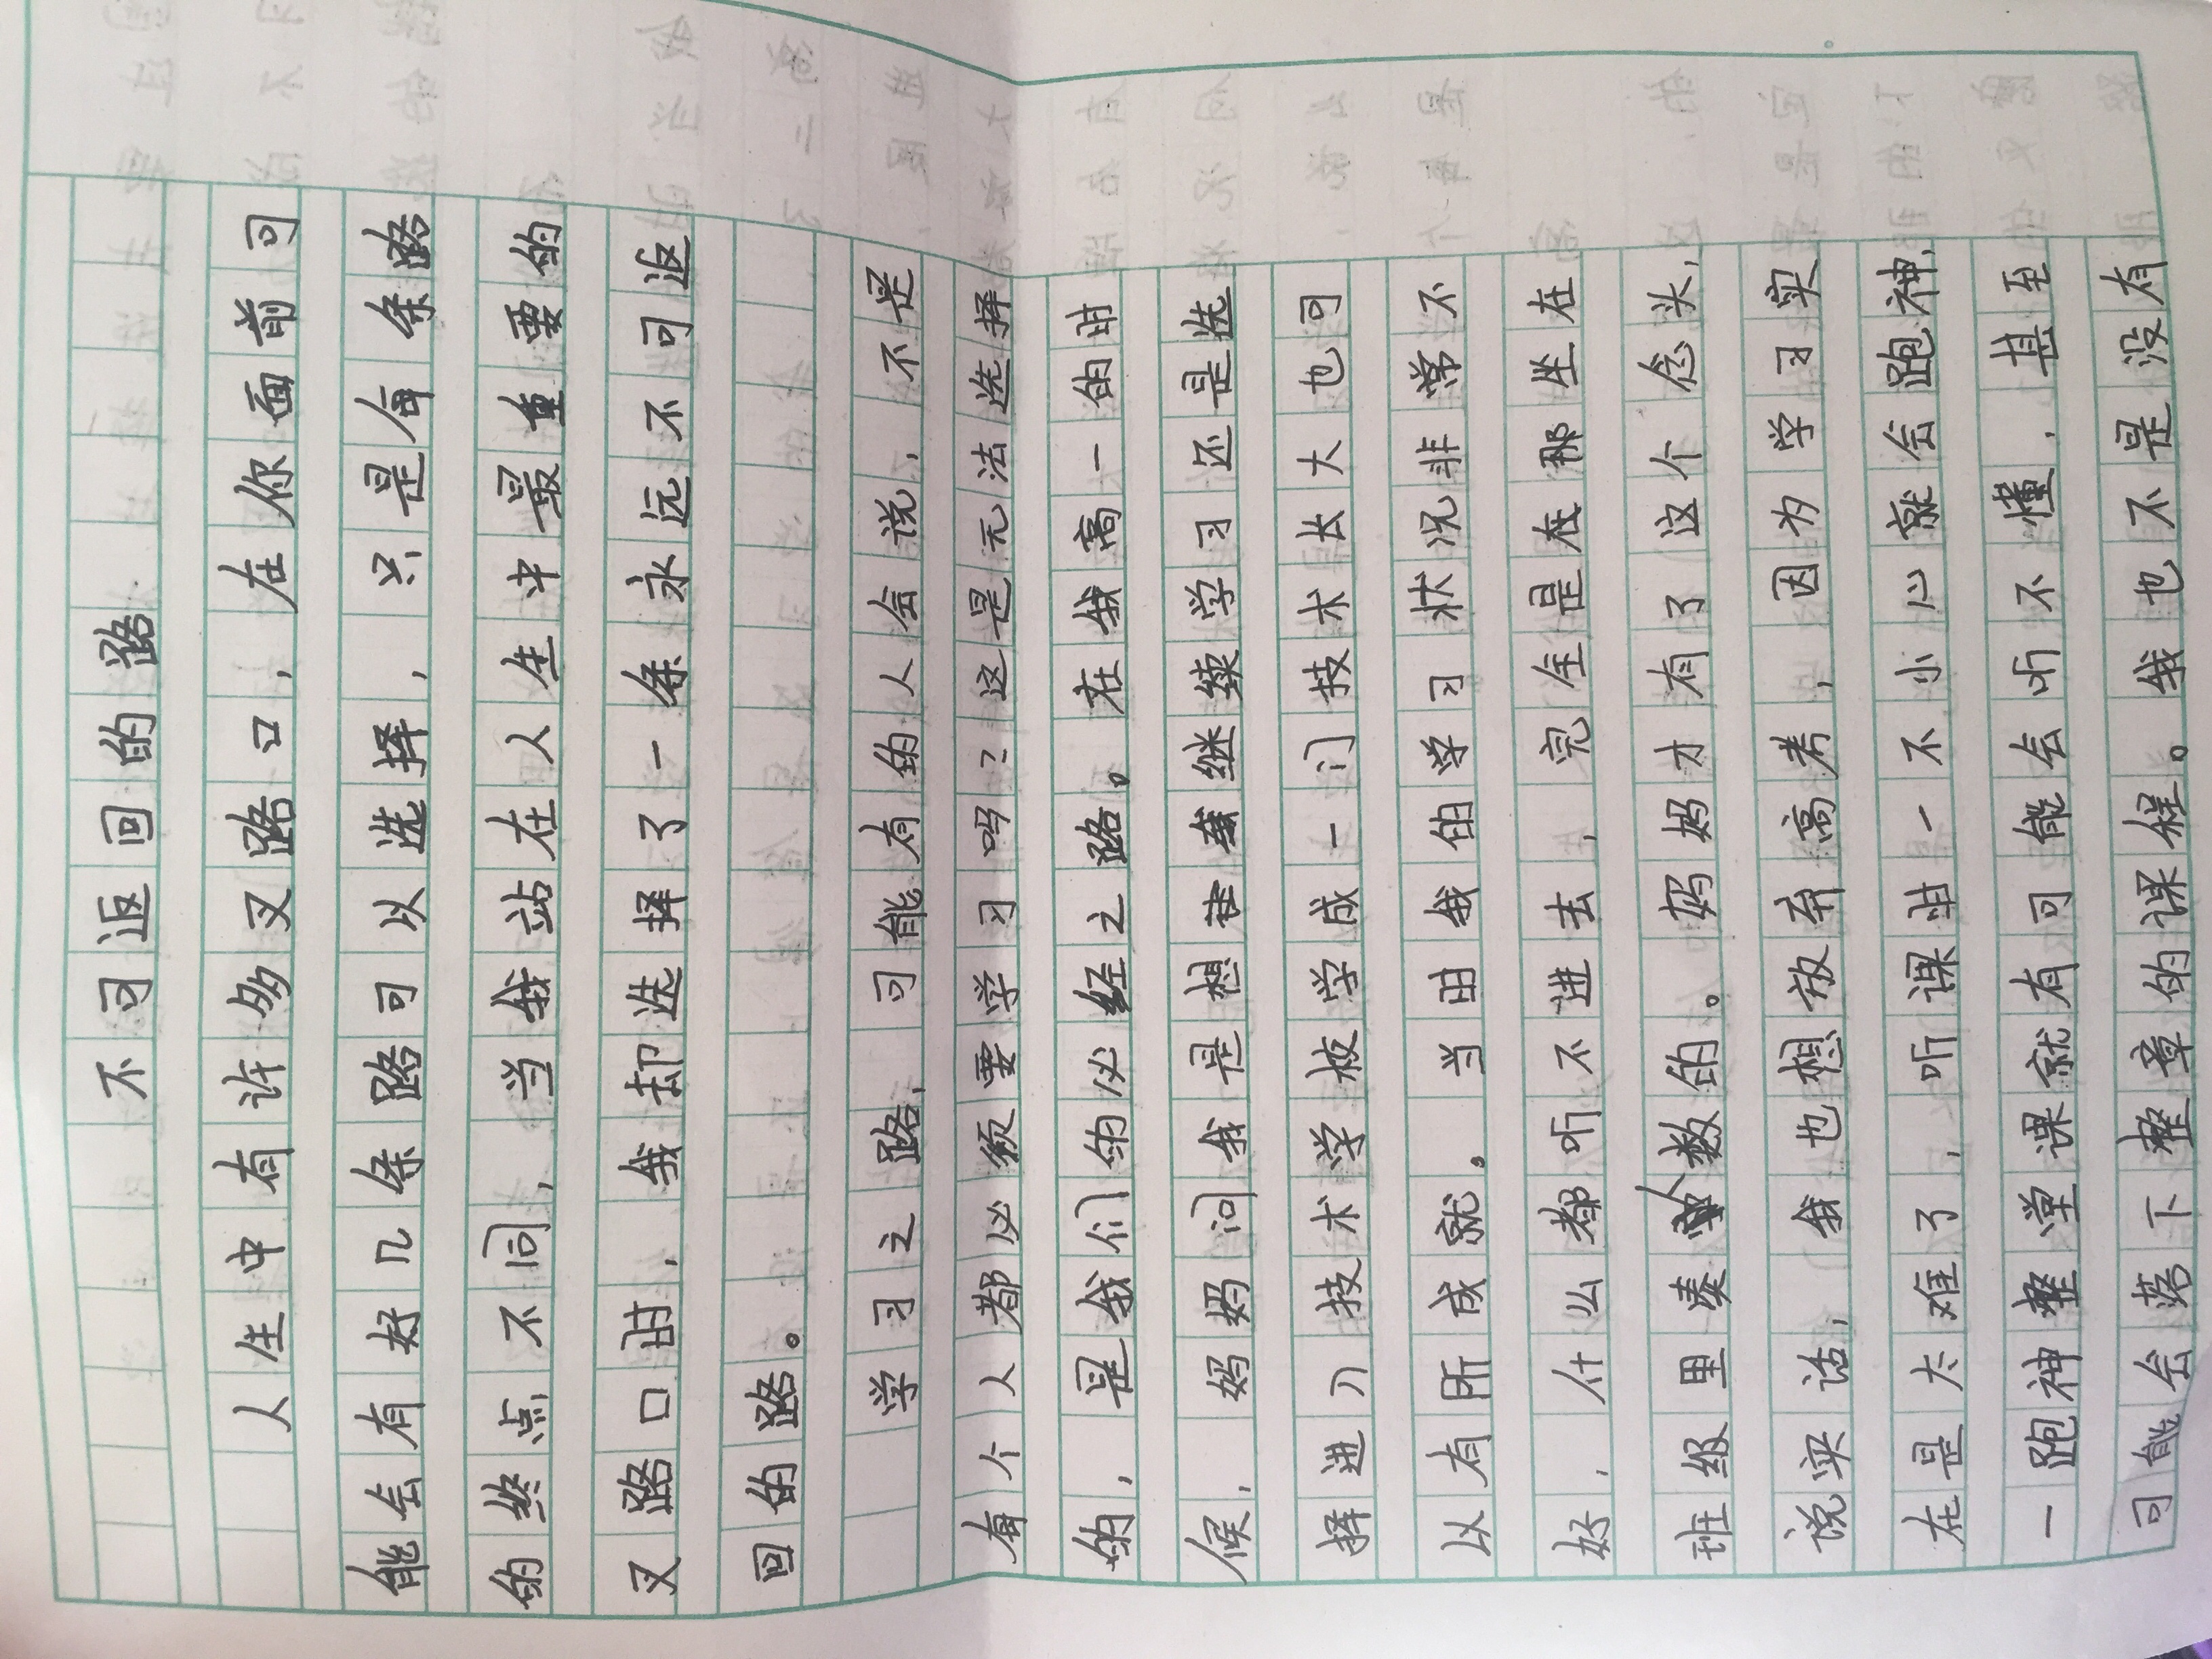 不可返回的路
人生中有许多叉路口，在你面前可
能会有好几条路可以选择，只是每条路
的终点不同，当我站在人生中最重要的
叉路口时，我却选择了一条永远不可返
回的路。
学习之路，可能有的人会说，不是
有个人都必须要学习吗？这是无法选择
的，是我们的必经之路。在我高一的时
候，妈妈问我是想继续学习还是选
择进入技术学校学成一门技术长大也可
以有所成就。当时我的学习状况非常不
好，什么都听不进去，完全是在那坐在
班级里凑人数的。妈妈才有了这个念头，
说实话，我也想放弃高考，因为学习实
在是太难了，听课时一不小心就会跑神，
一跑神整堂课就有可能会听不懂，甚至
可能会落下整章的课程。我也不是没有